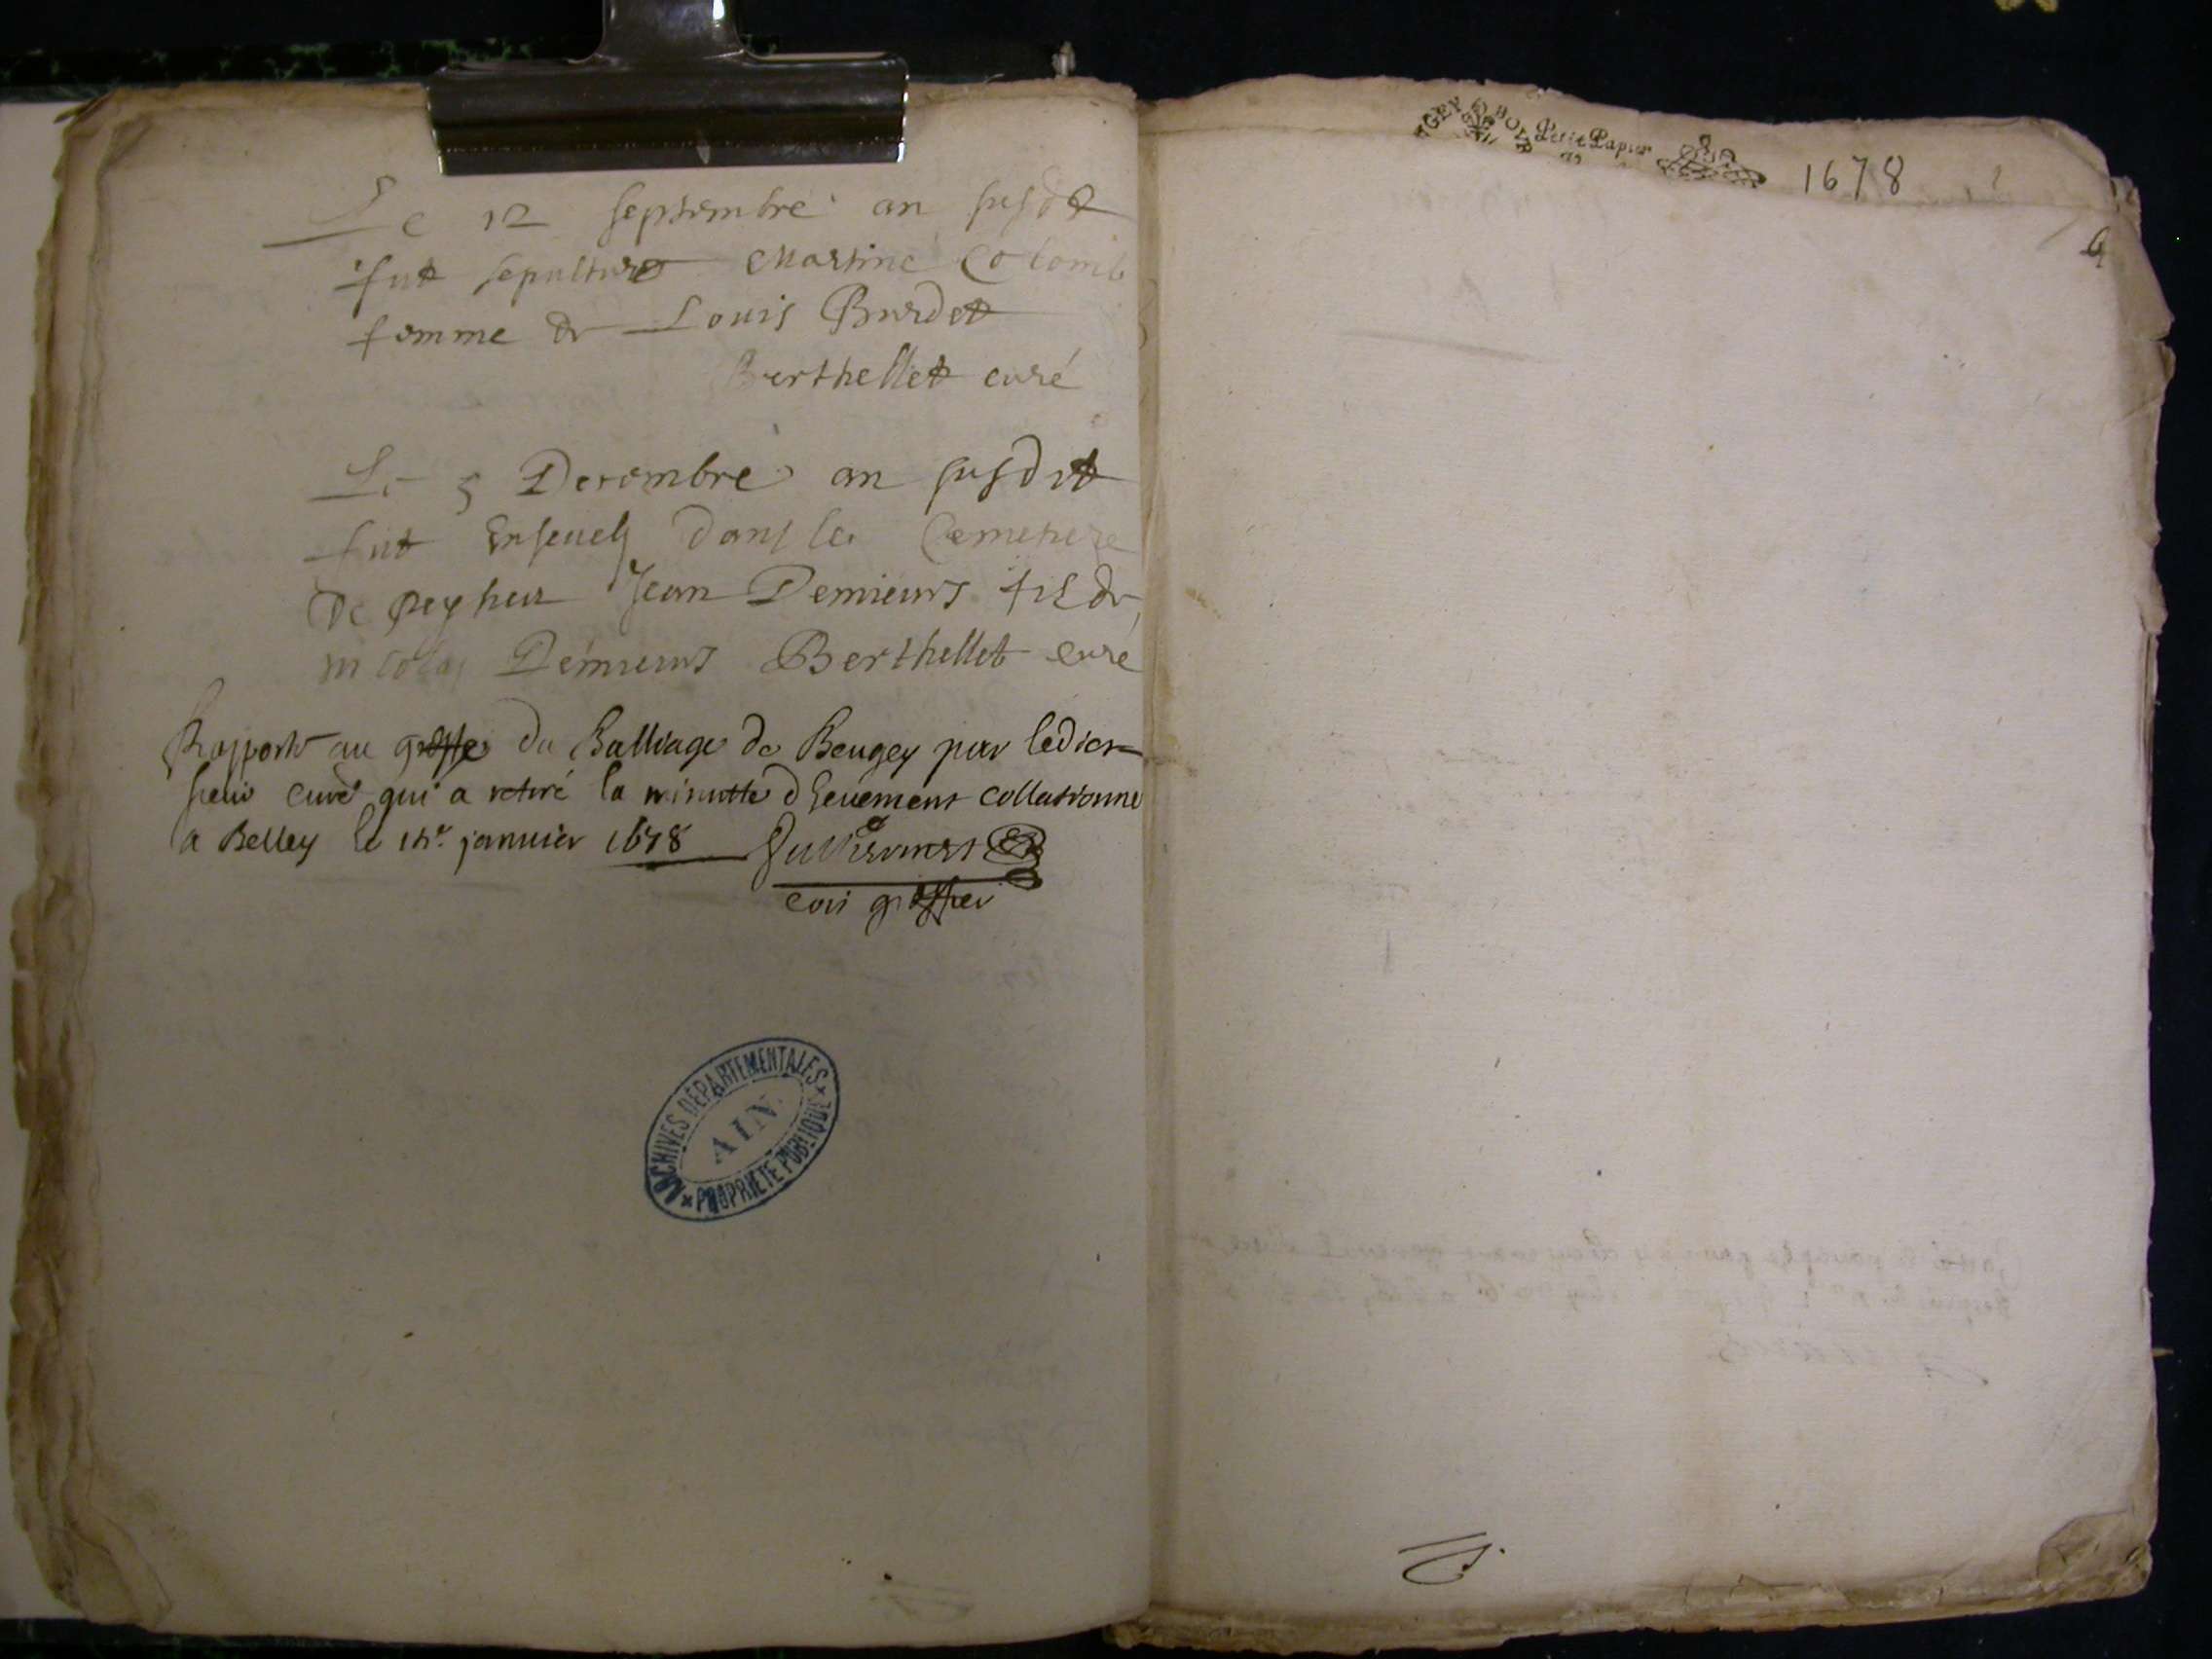 Le 12 septembre an susdit
fut sepulturé Martine Colomb
femme de Louis Burdet
Berthellet curé
Le 5 Decembre an susdit
fut Enseuely dans le Cemetiere
De peyzieu Jean Demieurs fils de
nicolas Demieurs Berthellet curé
Rapporté au greffe du Balliage de Beugey par ledict
sieur curé qui a retiré la minutte dheuement collationné
a Belley le janvier 1678
greffier
ARCHIVES DÉPARTEMENTALES
AIN
PROPRIÉTÉ PUBLIQUE
Petit Papier
1678